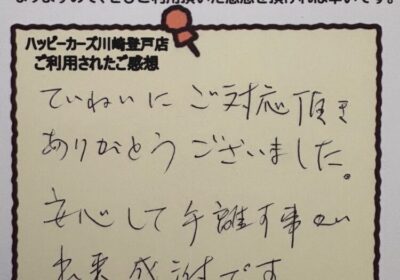 ハッピーカーズ川崎登戸店
ご利用されたご感想
ていねいにご対応頂き
ありがとうございました。
安心して手離す事が
出来感謝です